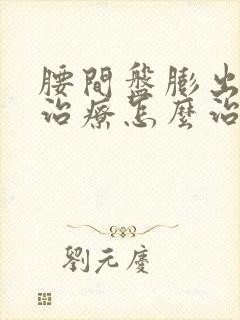 腰間盤膨出
治療怎麼治
劉元慶